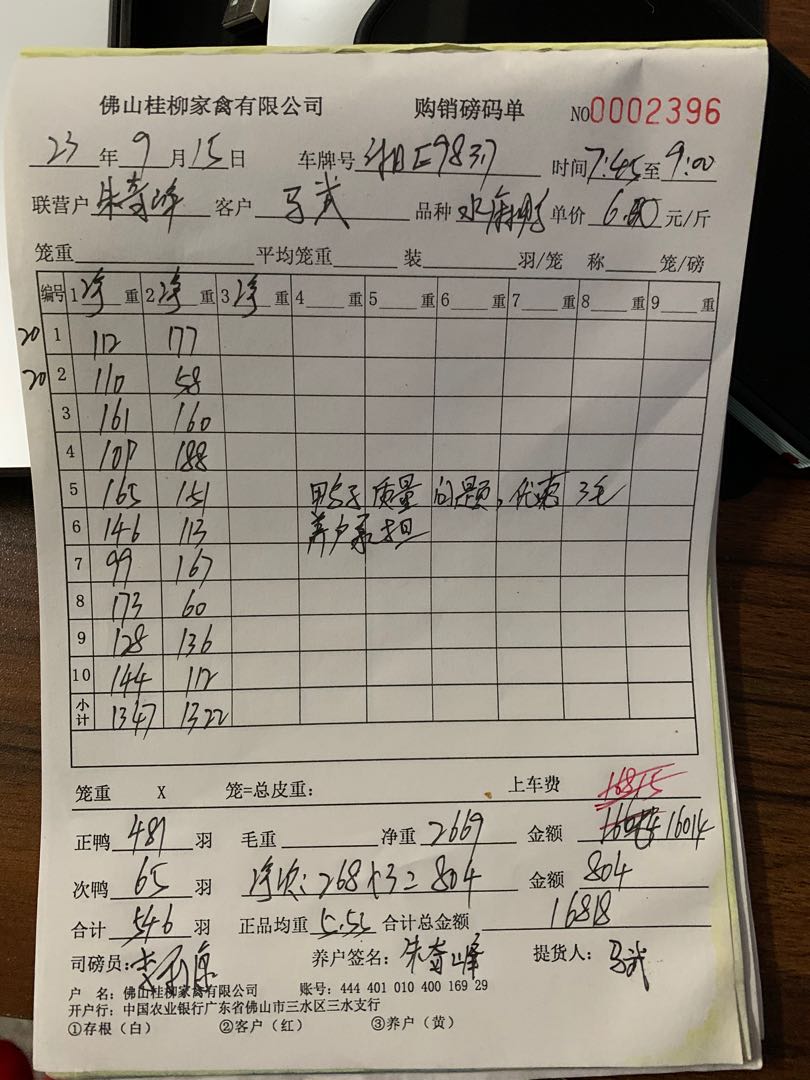 佛山桂柳家禽有限公司 购销磅码单 NO0002396
23年9月15日 车牌号 E9837 时间7:45至9:00
联营户 朱奇峰 客户 马武 品种 水麻鸭 单价 6.00 元/斤
笼重 平均笼重 装 羽/笼 称 笼/磅
编号 1净重 2净重 3净重 4重 5重 6重 7重 8重 9重
20 1 112 177
20 2 110 58
3 161 160
4 109 188
5 165 151 鸭子质量问题,优惠3毛
6 146 113 养户承担
7 99 167
8 173 60
9 128 136
10 144 112
小计 1347 1322
笼重 X 笼=总皮重: 上车费 16815
正鸭 481 羽 毛重 净重 2669 金额 16014
次鸭 65 羽 净次:268×3=804 金额 804
合计 546 羽 正品均重 5.55 合计总金额 16818
司磅员: 养户签名:朱奇峰 提货人:马武
户 名:佛山桂柳家禽有限公司 账号:444 401 010 400 169 29
开户行:中国农业银行广东省佛山市三水区三水支行
①存根(白) ②客户(红) ③养户(黄)